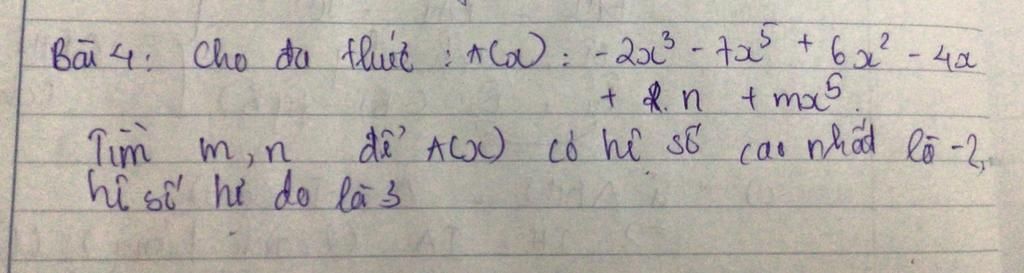 Bài 4: Cho đa thức: A(x): -2x³ - 7x⁵ + 6x² - 4x
+ n + mx⁵.
Tìm m, n để A(x) có hê số cao nhất là -2,
hê số tự do là 3